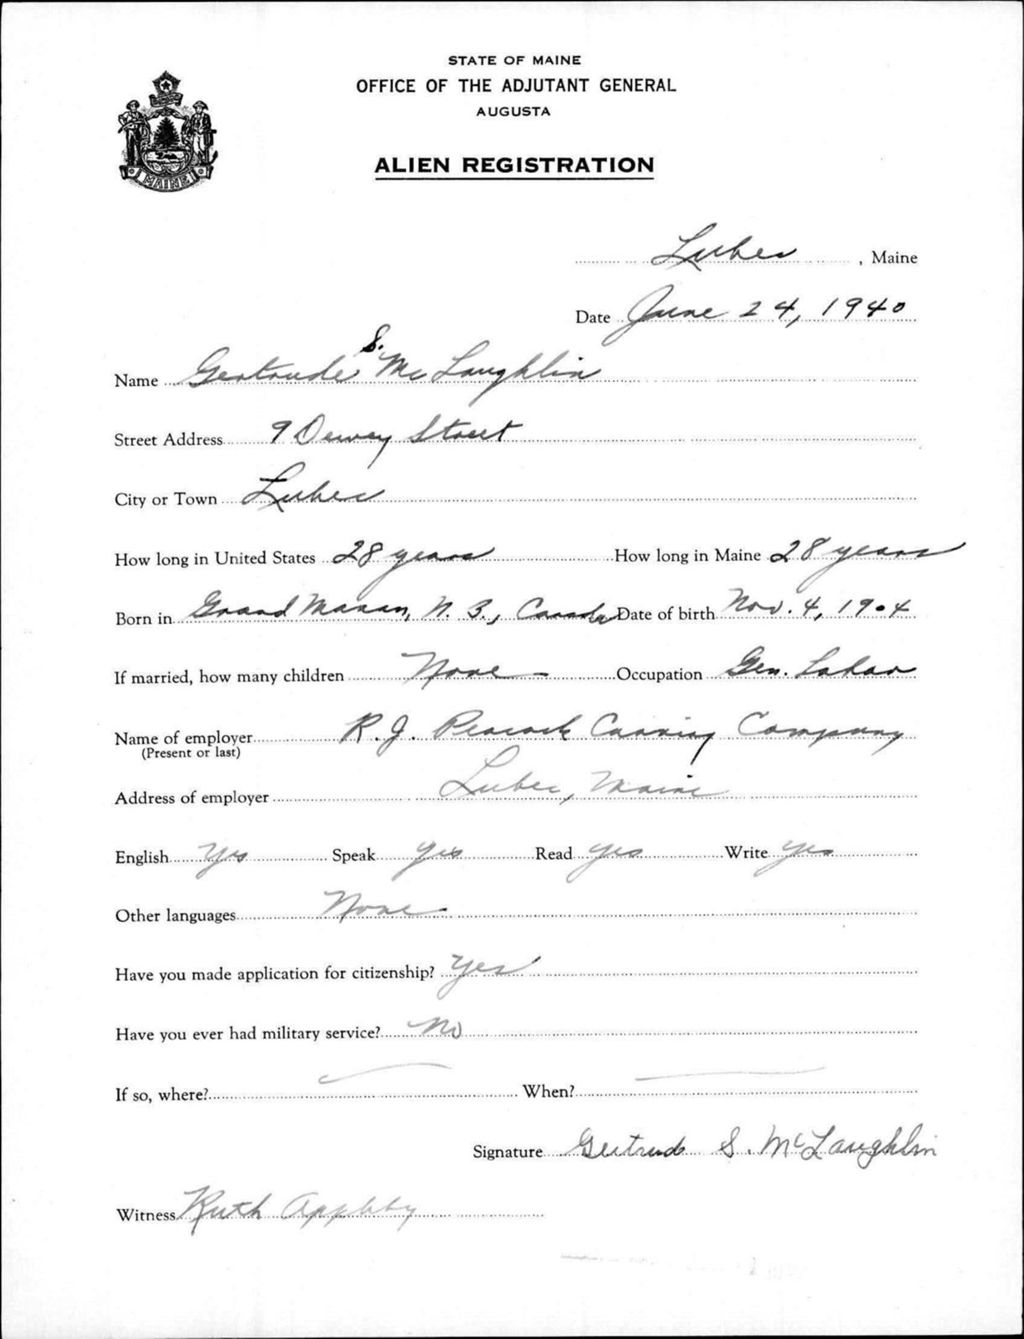 STATE OF MAINE
OFFICE OF THE ADJUTANT GENERAL
AUGUSTA
MAINE
ALIEN REGISTRATION
Lubec, Maine
Date June 24, 1940
Name Gertrude S. McLaughlin
Street Address 9 Dewey Street
City or Town Lubec
How long in United States 28 years How long in Maine 28 years
Born in Grand Manan, N. B., Canada Date of birth Nov. 4, 1904
If married, how many children None Occupation Gen. Labor
Name of employer R. J. Peacock Canning Company
(Present or last)
Address of employer Lubec, Maine
English Yes Speak Yes Read Yes Write Yes
Other languages None
Have you made application for citizenship? Yes
Have you ever had military service? No
If so, where? When?
Signature Gertrude S. McLaughlin
Witness Ruth Appleby